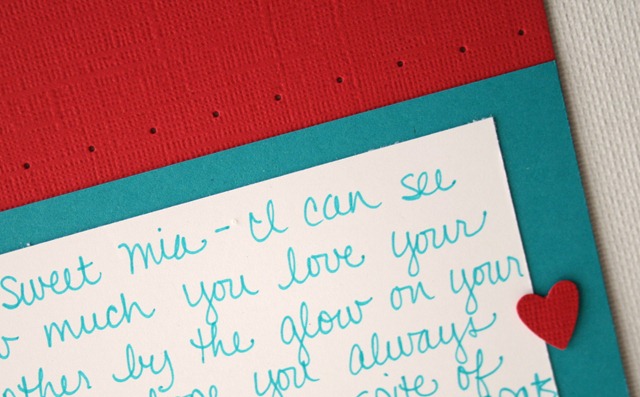 Sweet mia - I can see
much you love your
by the glow on your
you always
of